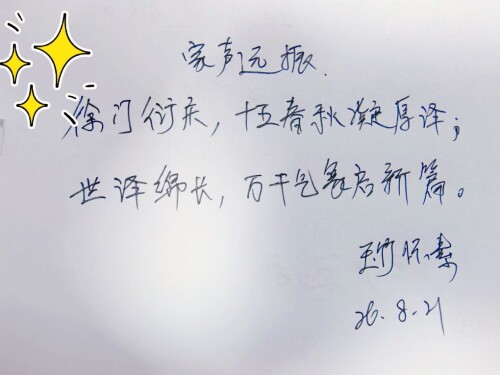 家声远振.
徐门衍庆，十五春秋凝厚泽；
世泽绵长，万千气象启新篇。
怀素
26.8.21